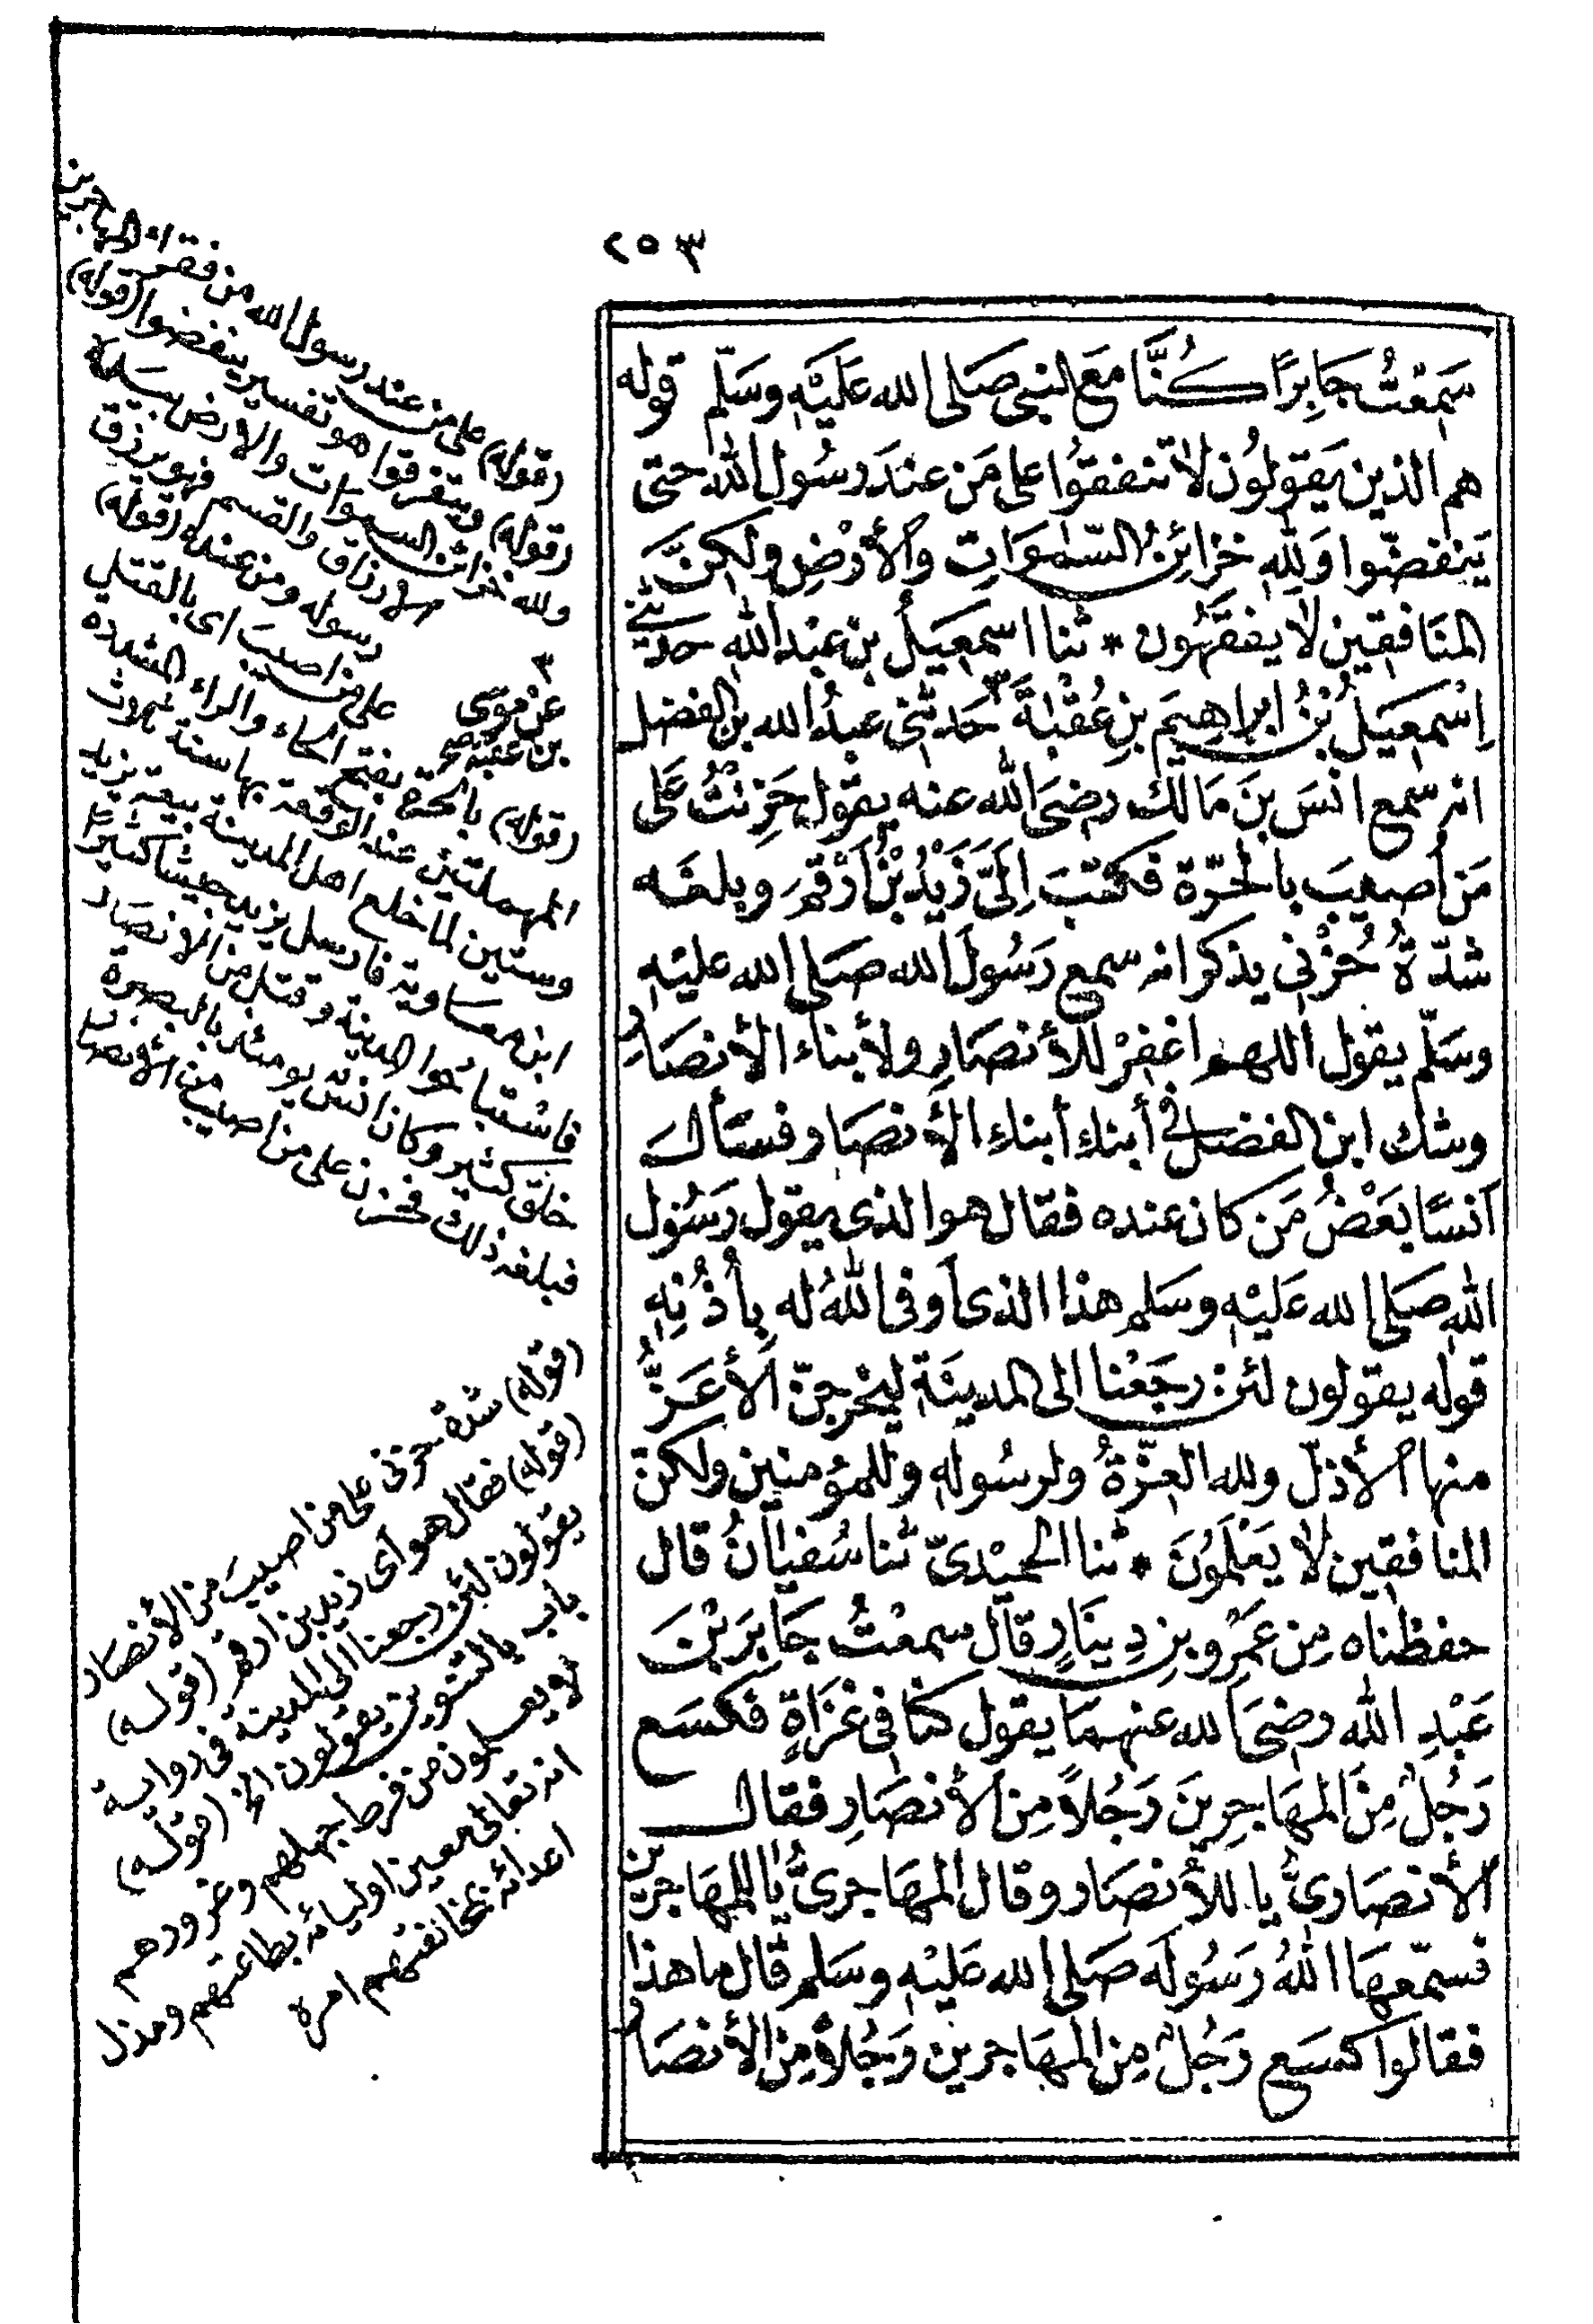 ٢٥٣
سَمِعْتُ جَابِرًا كُنَّا مَعَ النبى صَلى الله عَلَيْهِ وسَلّم قوله
هم الذين يَقولُون لا تنفقوُا على مَن عندَ رسُول الله حتى
يَنفضّوا وَلِلهِ خزائِنُ السّمٰوَاتِ وٱلأَرْضِ ولكِنَّ
المنَافِقِين لا يفقَهُون * ثنا اسمعِيَلُ بن عَبْد الله حَدثنى
اِسْمعِيَلُ بْنُ ابراهِيمَ بنِ عُقْبَةَ حَدثنى عبدُ الله بن الفضل
انه سمع انَسَ بنَ مَالك رضىَ الله عنه يقول حَزِنْتُ عَلى
مَن أصيبَ بالحَرّة فكتبَ اِلَىَّ زَيْدُ بْنُ اَرْقمَ وبلغَه
شدّةُ حُزْنى يذكر انه سمع رَسُولَ الله صَلى الله عليْهِ
وسَلّم يقول اللهم اغفِرْ للأنصَارِ ولأبناء الأنصَارِ
وشك ابن الفضل فى أبناء أبناء الأنصَار فسَأل
اَنسًا بَعْضُ مَن كان عنده فقال هوا لذى يقول رَسُول
الله صَلى الله عَليْهِ وسَلم هذا الذى أَوفى اللهُ له بِأُذُنِهِ
قوله يقولون لئن رجَعْنا الى المدينَة ليخرجنّ الأعَزُّ
منها ٱلأذلّ ولله العِزّةُ ولرسُولهِ وللمؤمنين ولكنّ
المنافقين لا يَعْلَمُونَ * ثنا الحميْدىّ ثنا سُفيانُ قال
حفظناه مِن عَمْرو بنِ دِينَارٍ قال سمعْتُ جَابرَ بْنَ
عَبْدِ الله رضىَ الله عنهما يقول كنا فى غزَاةٍ فكسَع
رَجُلٌ مِنَ المهَاجِرِينَ رَجُلاً مِنَ الأنصَارِ فقال
ٱلأنصَارىُّ يا للأنصَار وقال المهَاجرىُّ يا للمهَاجرين
فسمّعهَا اللهُ رَسُولَه صَلى الله عَليْهِ وسَلم قال ما هذا
فقالوا كسَع رَجُلٌ مِن المهَاجرين رَجُلاً مِن الأنصَار
(قوله) على من عند رسول الله من فقراء المهاجرين
(قوله) ويتفرقوا هو تفسير ينفضوا (قوله)
ولله خزائن السموات والارض بيده
الارزاق والقسم فهو يرزق
رسوله ومن عنده (قوله)
على من اصيب اى بالقتل
عن موسى
بن عقبة صح
(قوله) بالحرة بفتح الحاء والراء المشدده
المهملتين عند الوقعة بها سنة ثلاث
وستين لما خلع اهل المدينة بيعة يزيد
ابن معاوية فارسل يزيد جيشا كثيرا
فاستباحوا المدينة وقتل من الانصار
خلق كثير وكان انس يومئذ بالبصرة
فبلغه ذلك فحزن على من اصيب من الانصار
(قوله) شدة حزنى على من اصيب من الأنصار
(قوله) فقال هو أى زيد بن ارقم (قوله)
يقولون لئن رجعنا الى المدينة فى رواية
باب بالتنوين يقولون الخ (قوله)
لا يعلمون من فرط جهلهم وغرورهم
انه تعالى معين اوليائه بطاعتهم ومذل
اعدائه بمخالفتهم امره